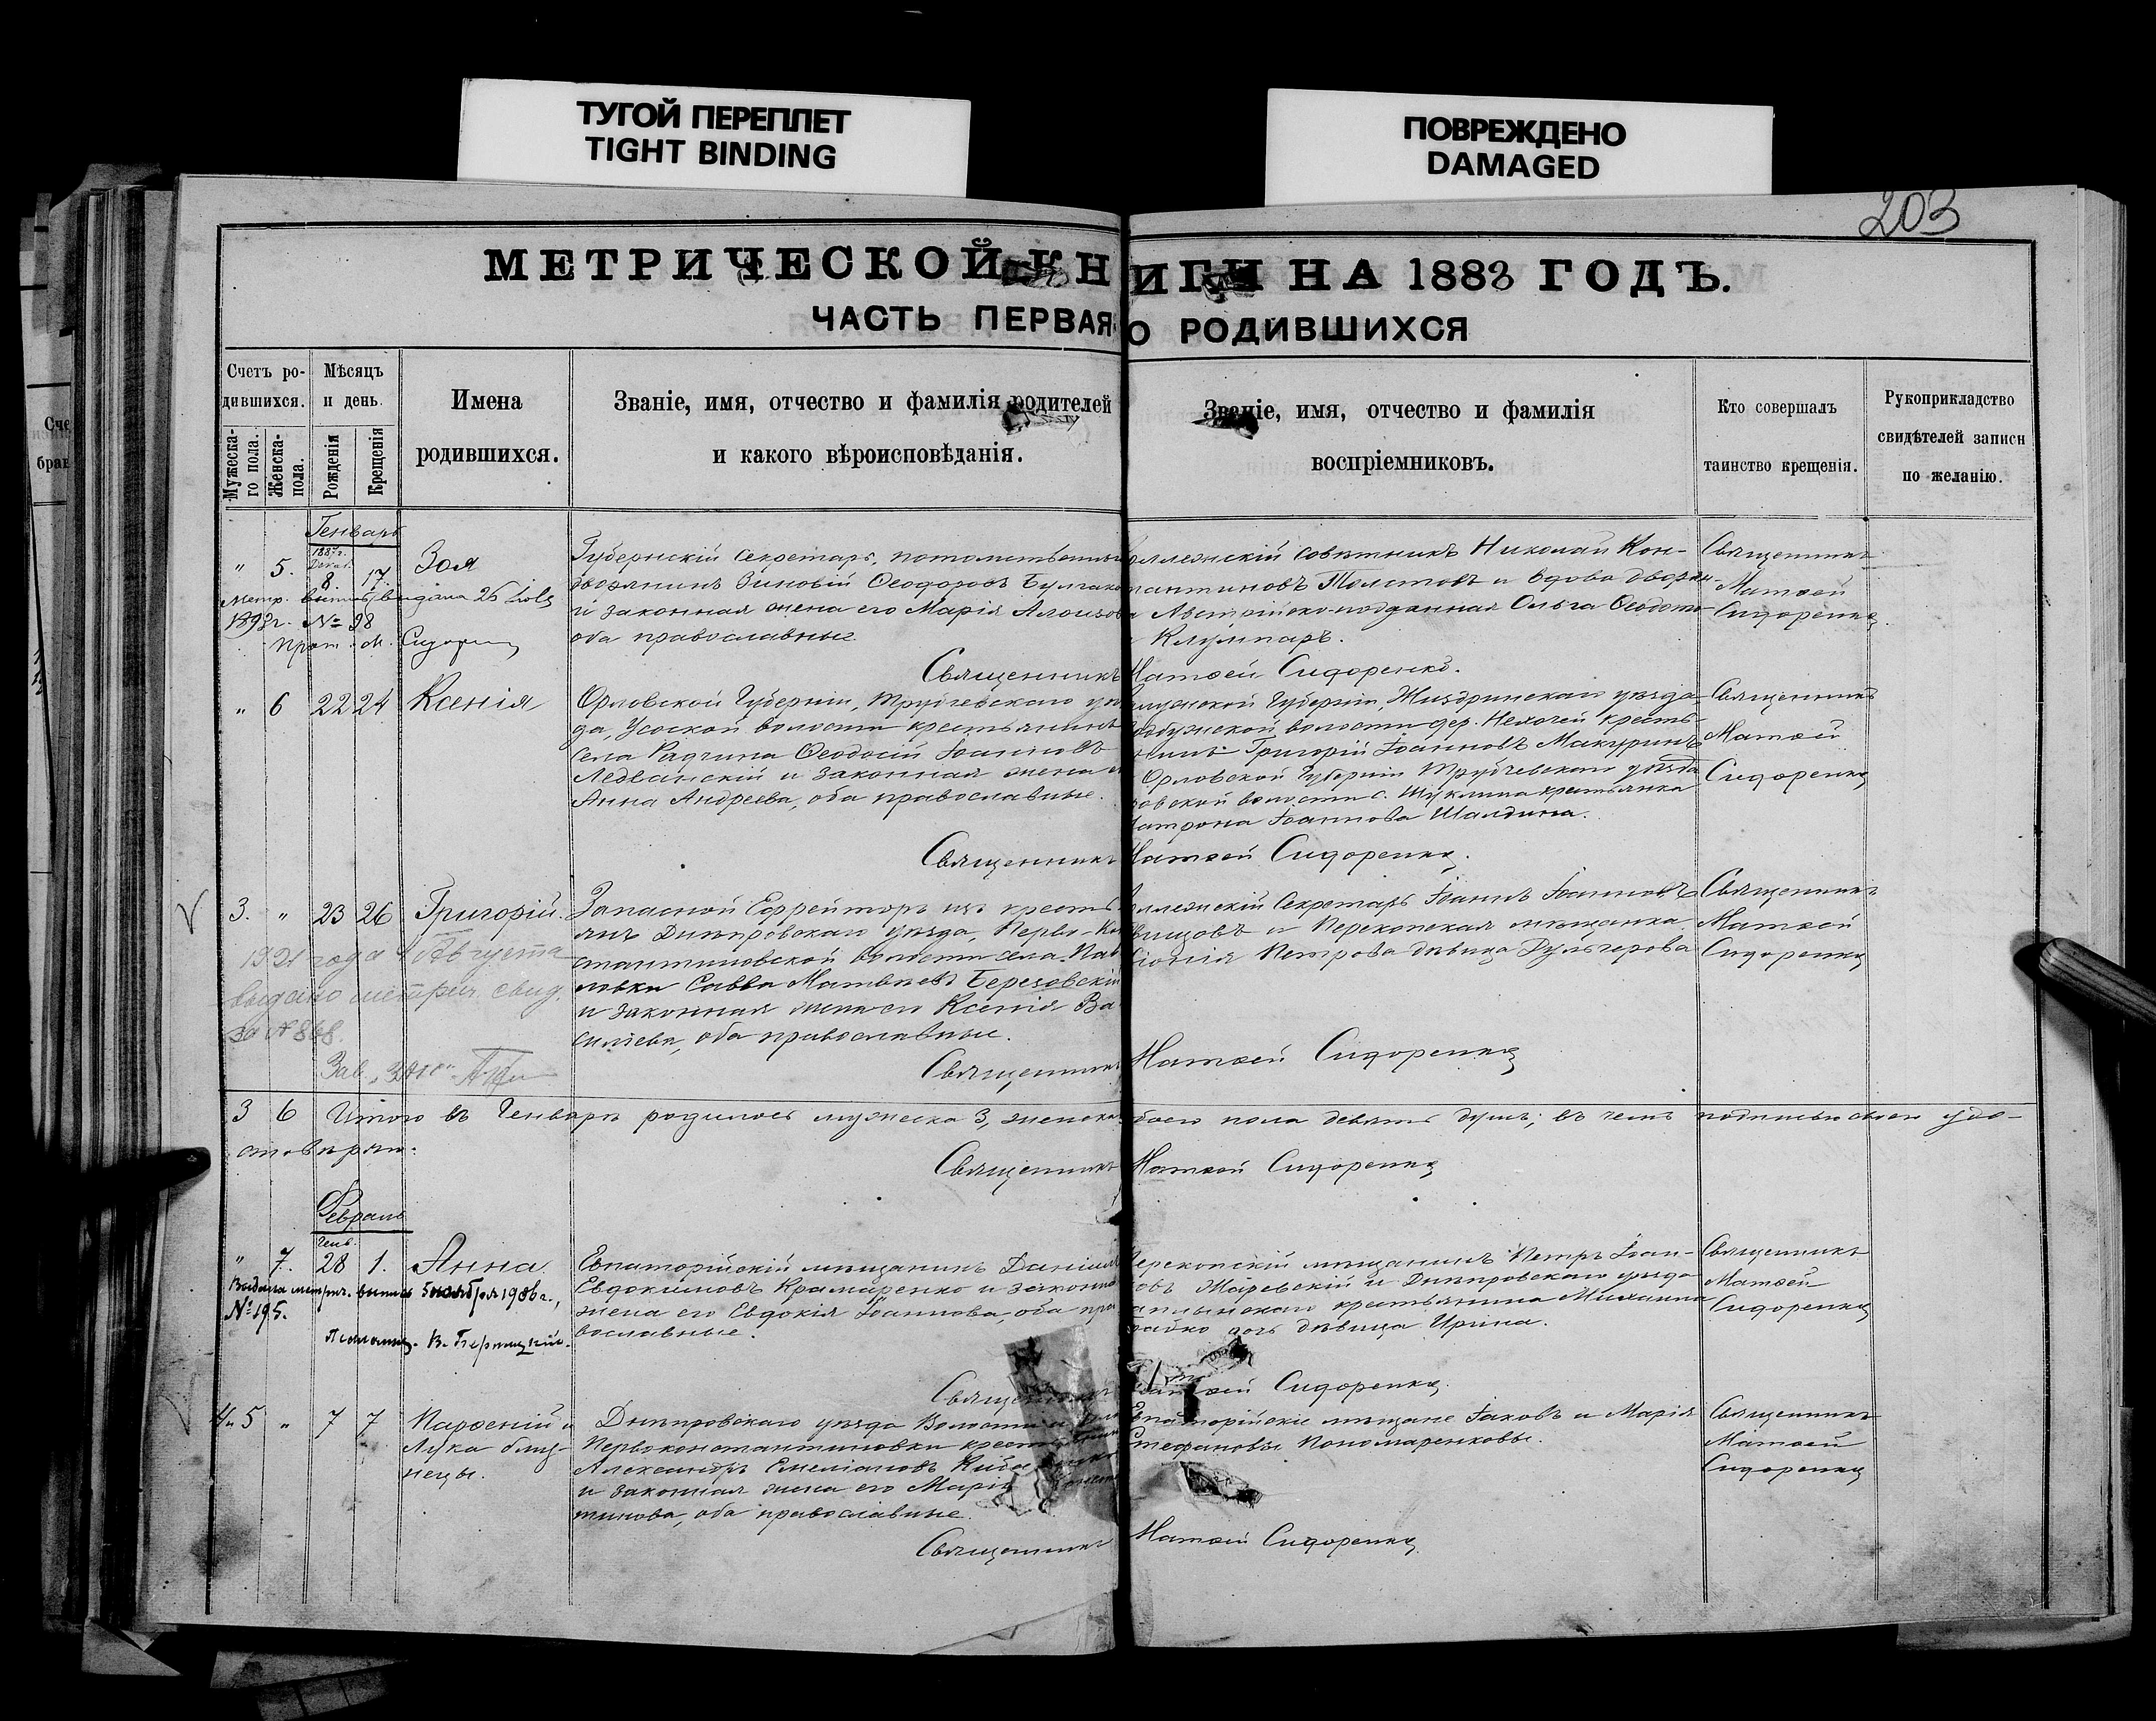 ТУГОЙ ПЕРЕПЛЕТ
TIGHT BINDING
ПОВРЕЖДЕНО
DAMAGED
203
МЕТРИЧЕСКОЙ КНИГИ НА 1888 ГОДЪ.
ЧАСТЬ ПЕРВАЯ О РОДИВШИХСЯ
Счетъ ро-
дившихся.
Мужеска-
го пола.
Женска-
пола.
Мѣсяцъ
и день.
Рожденія
Крещенія
Имена
родившихся.
Званіе, имя, отчество и фамилія родителей
и какого вѣроисповѣданія.
Званіе, имя, отчество и фамилія
воспріемниковъ.
Кто совершалъ
таинство крещенія.
Рукоприкладство
свидѣтелей записи
по желанію.
Генварь
" 5. 8. 17. Зоя
Губернскій Секретарь, потомственный
дворянинъ Зиновій Ѳеодоровъ Булгако
и законная жена его Марія Алоизов
оба православные
ллежскій совѣтникъ Николай Кон-
тантиновъ Толстовъ и вдова дворян-
Австрійско-подданная Ольга Ѳеодото-
Клумпаръ.
Священникъ
Матѳей
Сидоренко
Метр. выпись выдана 26
189 г. № 98
Прот. М. Сидорен
Священникъ Матѳей Сидоренко.
" 6 22 24 Ксенія
Орловской Губерніи, Трубчевскаго уѣз
да, Усоской волости крестьянинъ
села Радчина Ѳеодосій Іоанновъ
Ледванскій и законная жена е
Анна Андреева, оба православные.
лужской Губерніи, Жиздринскаго уѣзда
волости дер. Нехочей кресть-
нинъ Григорій Іоанновъ Макуринъ
Орловской Губерніи Трубчевскаго уѣзда
овской волости с. Шуклина крестьянка
атрона Іоаннова Шалдина.
Священникъ
Матѳей
Сидоренко
Священникъ Матѳей Сидоренко.
3. " 23 26 Григорій.
Запасной Ефрейторъ изъ кресть
янъ Днѣпровскаго уѣзда, Перво-Кон
стантиновской волости села Пав
ловки Савва Матвѣевъ Березовскій
и законная жена его Ксенія Ва
силіева, оба православные.
ллежскій Секретарь Іоаннъ Іоанновъ
вицовъ и Перекопская мѣщанка
Петрова дѣвица Дульгерова
Священникъ
Матѳей
Сидоренко
1921 года 4 Августа
выдано метрич. свид.
за № 868.
Зав. ЗАГС
Священникъ Матѳей Сидоренко
3 6 Итого въ Генварѣ родилось мужеска 3, женска боего пола девять душъ; въ чемъ подписью своею удо-
стовѣряю.
Священникъ Матѳей Сидоренко
Февраль
Генв.
" 7. 28 1. Анна
Евпаторійскій мѣщанинъ Даніилъ
Евдокимовъ Крамаренко и законная
жена его Евдокія Іоаннова, оба пра
вославные.
ерекопскій мѣщанинъ Петръ Іоан-
овъ Жаревскій и Днѣпровскаго уѣзда
крестьянина Михаила
дочь дѣвица Ирина.
Священникъ
Матѳей
Сидоренко
Выдана метрич. выпись 5 ноября 1906 г.,
№ 195.
Священникъ Матѳей Сидоренко.
4 и 5 " 7 7 Парѳеній и
Лука близ-
нецы.
Днѣпровскаго уѣзда Волости и
Первоконстантиновки крест
Александръ Емеліановъ
и законная жена его Марія
тинова, оба православные.
Евпаторійскіе мѣщане Іаковъ и Марія
Стефановы Пономаренковы.
Священникъ
Матѳей
Сидоренко
Священникъ Матѳей Сидоренко